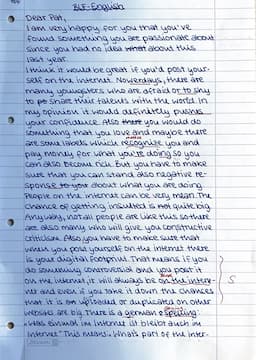 BLF-English
Dear Pat,
I am very happy for you that you've
found something you are passionate about
since you had no idea what about this
last year.
I think it would be great if you'd post your-
self on the internet. Nowerdays, there are
many youngsters who are afraid or to shy
to po share their talents with the world. In
my opinion it would definitely pushes
your confidence. Also there you would do
something that you love and maybe there
are some labels which recognise you and
pay money for what you're doing so you
can also become rich. But you have to make
sure that you can stand also negative re-
sponse to you about what you are doing.
People on the internet can be very mean. The
chance of getting insulted is not quite big.
Anyway, not all people are like this so there
are also many who will give you constructive
criticism. Also you have to make sure that
when you post yourself on the internet there
is your digital footprint. That means if you
do something controversial and you post it
on the internet, it will always be on the inter-
net and even if you take it down the chances
that it is am uploaded or duplicated on other
websites are big. There is a german
"Was einmal im Internet ist bleibt auch im
Internet". This means: What's part of the inter-
S